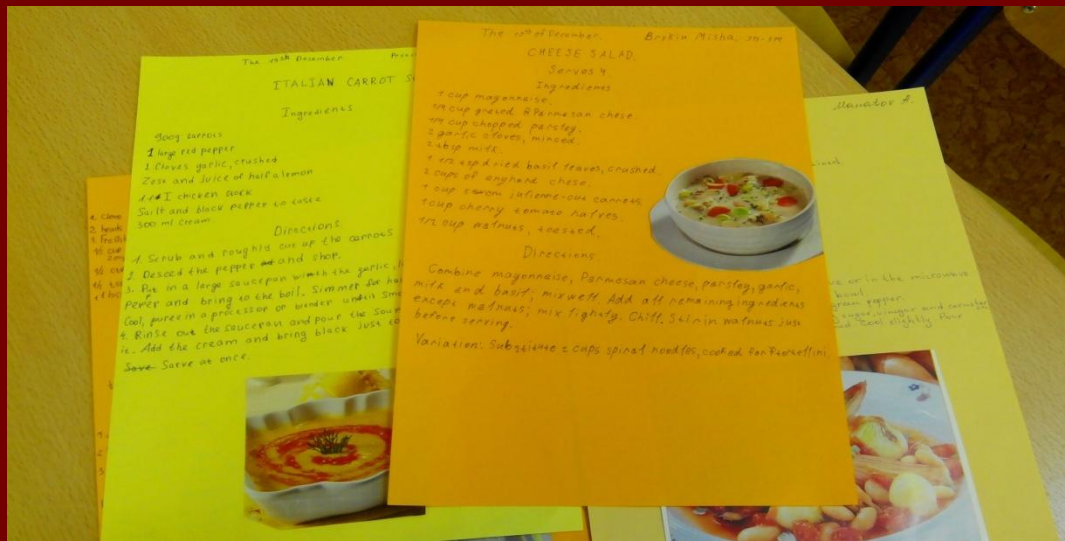 The 19th December
ITALIAN CARROT
Ingredients
900g carrots
1 large red pepper
2 cloves garlic, crushed
Zest and juice of half a lemon
chicken stock
Sailt and black pepper to taste
300 ml cream.
Directions.
1. Scrub and roughly cut up the carrots
2. Deseed the pepper and shop.
3. Put in a large saucepan with the garlic,
Peper and bring to the boil. Simmer for
Cool, puree in a processor or bender untill
4. Rinse out the saucepan and pour the soup
it. Add the cream and bring black just to
Save Sarve at once.
The 19th of December. Brykin Misha.
CHEESE SALAD.
Serves 4
Ingredients
1 cup mayonnaise.
1/4 cup grated Parmesan chese.
1/4 cup chopped parsley.
2 garlic cloves, minced.
2 tbsp milk.
1 1/2 tsp dried basil leaves, crushed.
2 cups of anghard chese.
1 cup julienne-cut carrots
1 cup cherry tomato halves.
1/2 cup walnuts, toasted.
Directions
Combine mayonnaise, Parmesan cheese, parsley, garlic,
milk and basil; mix well. Add all remaining ingredients
except walnuts; mix lightly. Chill. Stir in walnuts just
before serving.
Variation: Substitute 2 cups spiral noodles, cooked for
Manatov A.
or in the microwave
bowl
pepper.
sugar, vinegar and
cool slightly Pour